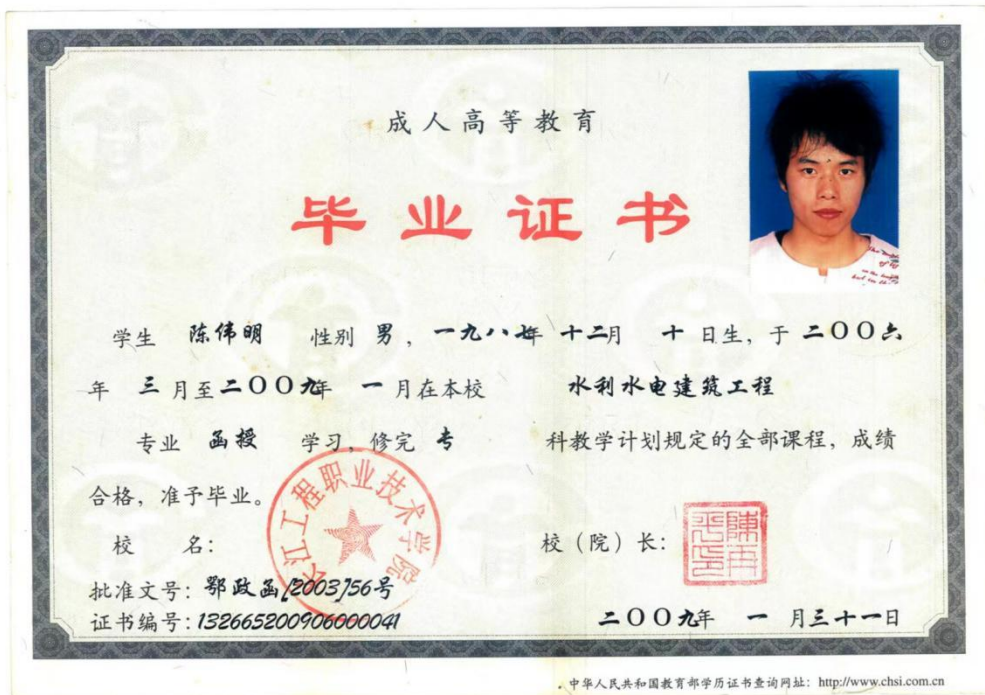 成人高等教育
毕业证书
学生 陈伟明 性别 男，一九八七年 十二月 十日生，于 二〇〇六
年 三月至二〇〇九年 一月在本校 水利水电建筑工程
专业 函授 学习，修完 专 科教学计划规定的全部课程，成绩
合格，准予毕业。
校 名：
长江工程职业技术学院
校（院）长：
批准文号：鄂政函[2003]56号
证书编号：132665200906000041
二〇〇九年 一月三十一日
中华人民共和国教育部学历证书查询网址：http://www.chsi.com.cn